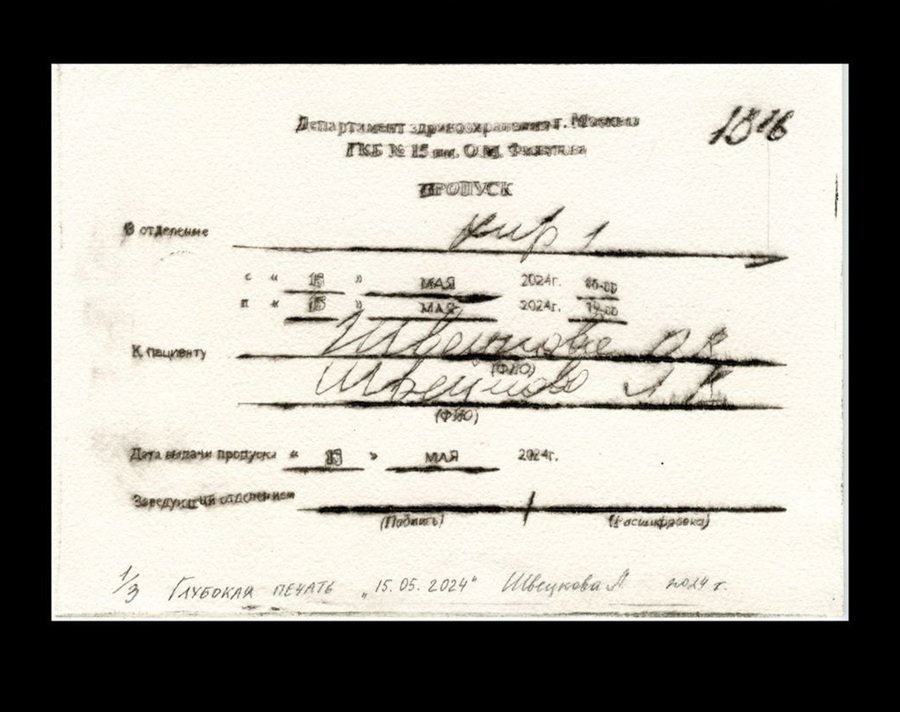 1316
Департамент здравоохранения г. Москвы
ГКБ № 15 им. О.М. Филатова
ПРОПУСК
В отделение хир 1
с « 15 » МАЯ 2024г.
п « 15 » МАЯ 2024г. 19.00
К пациенту
(ФИО)
(ФИО)
Дата выдачи пропуска « » МАЯ 2024г.
Заведующий отделением /
(Подпись) (Расшифровка)
1/3 ГЛУБОКАЯ ПЕЧАТЬ „15.05.2024“ Швецкова Л 2024 г.